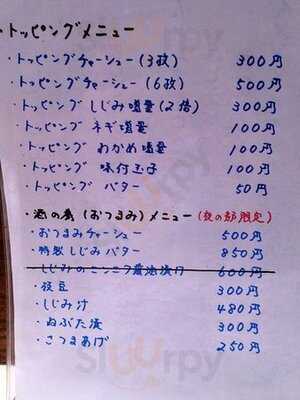 ・トッピングメニュー
・トッピングチャーシュー(3枚) 300円
・トッピングチャーシュー(6枚) 500円
・トッピング しじみ増量(2倍) 300円
・トッピング ネギ増量 100円
・トッピング わかめ増量 100円
・トッピング 味付玉子 100円
・トッピング バター 50円
・酒の肴(おつまみ)メニュー(夜の部限定)
・おつまみチャーシュー 500円
・特製しじみバター 850円
・しじみのニンニク醤油漬け 600円
・枝豆 300円
・しじみ汁 480円
・ねぶた漬 300円
・さつまあげ 250円
sluurpy